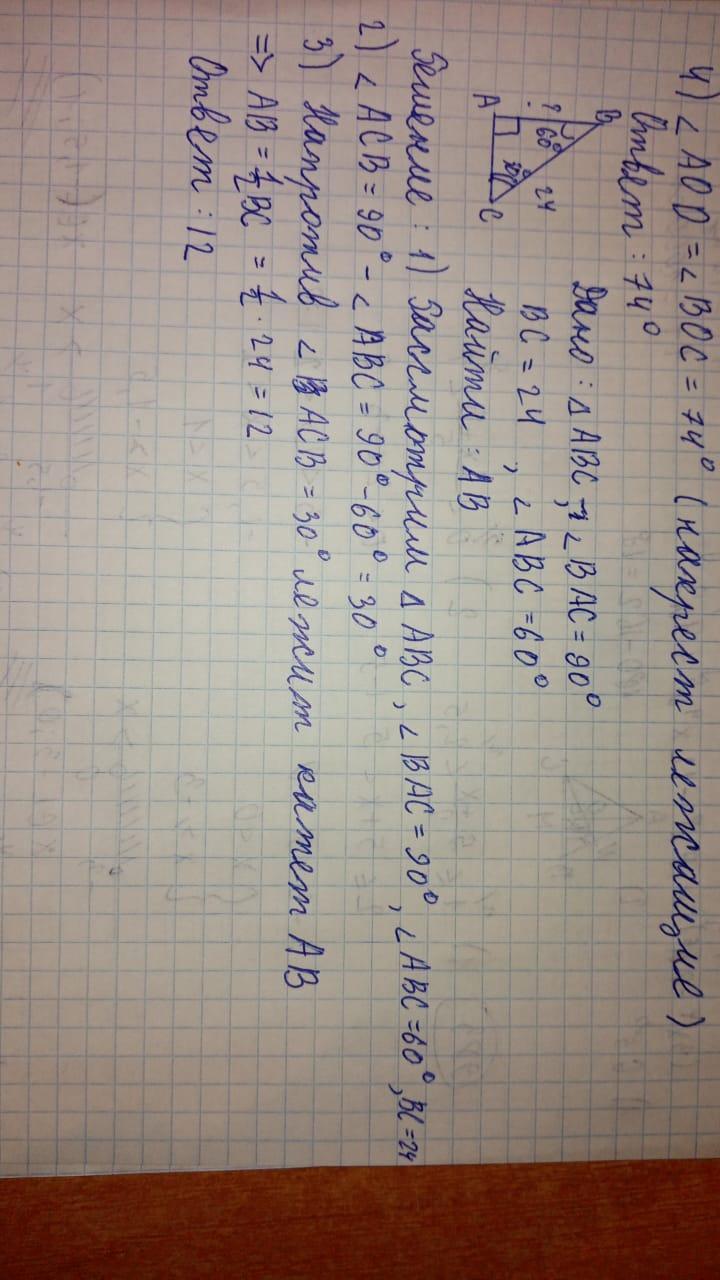 4) ∠AOD = ∠BOC = 74° (накрест лежащие)
Ответ: 74°
B
?
60°
24
A
30°
C
Дано: △ABC, ∠BAC = 90°
BC = 24, ∠ABC = 60°
Найти: AB
Решение: 1) Рассмотрим △ABC, ∠BAC = 90°, ∠ABC = 60°, BC = 24
2) ∠ACB = 90° - ∠ABC = 90° - 60° = 30°
3) Напротив ∠ACB = 30° лежит катет AB
=> AB = 1/2 BC = 1/2 · 24 = 12
Ответ: 12